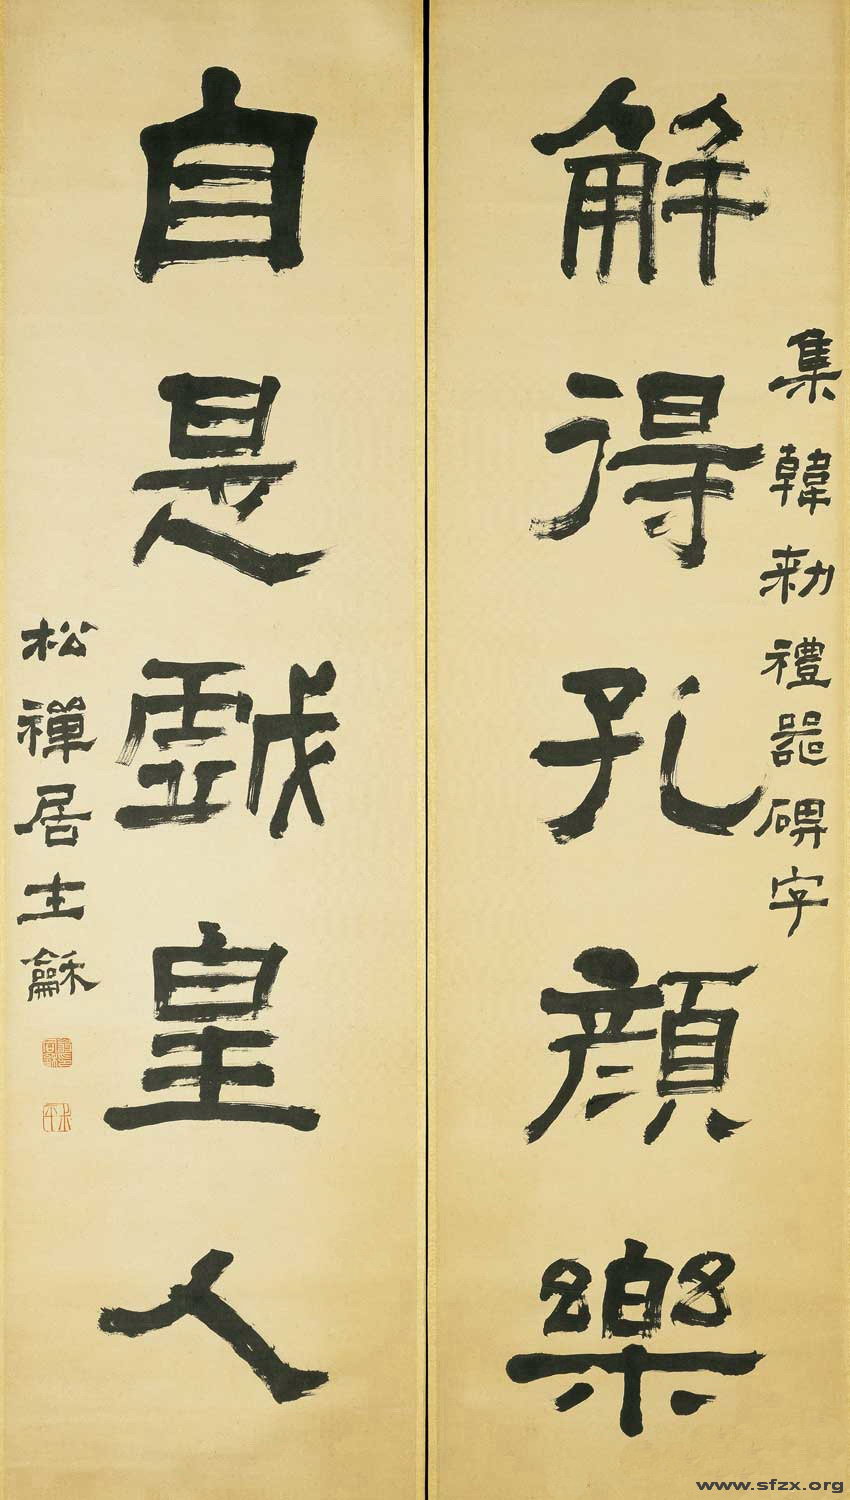 集韓勑禮器碑字
解得孔顏樂
自是戯皇人
松禪居士龢
www.sfzx.org